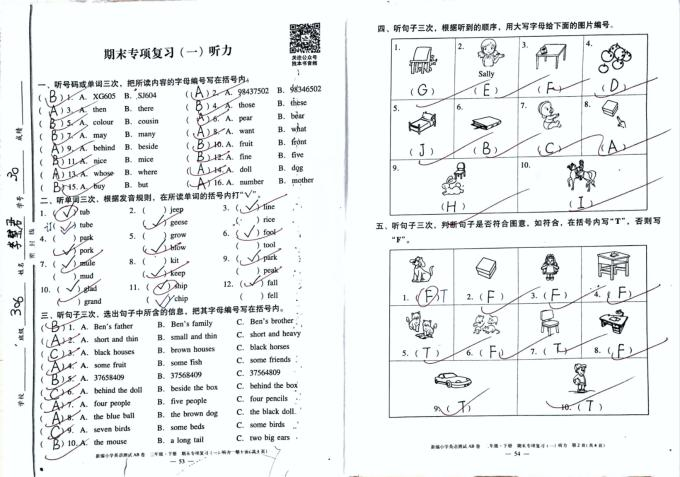 期末专项复习（一）听力
关注公众号
找本书音频
一、听号码或单词三次，把所读内容的字母编号写在括号内。
(B) 1. A. XG605 B. SJ604 (A) 2. A. 98437502 B. 98346502
(A) 3. A. then B. there (B) 4. A. those B. these
(B) 5. A. colour B. cousin (A) 6. A. pear B. bear
(B) 7. A. may B. many (A) 8. A. want B. what
(A) 9. A. behind B. beside (B) 10. A. fruit B. front
(B) 11. A. nice B. mice (B) 12. A. fine B. five
(A) 13. A. whose B. where (A) 14. A. doll B. dog
(B) 15. A. buy B. but (A) 16. A. number B. mother
二、听单词三次，根据发音规则，在所读单词的括号内打“√”。
1. ( √ ) tub 2. ( ) jeep 3. ( √ ) fine
( ) tube ( √ ) geese ( ) rice
4. ( ) park 5. ( ) grow 6. ( √ ) fool
( √ ) pork ( √ ) blow ( ) tool
7. ( √ ) mule 8. ( ) kit 9. ( √ ) park
( ) mud ( √ ) keep ( ) peak
10. ( √ ) glad 11. ( ) ship 12. ( √ ) fall
( ) grand ( √ ) chip ( ) fell
三、听句子三次，选出句子中所含的信息，把其字母编号写在括号内。
(B) 1. A. Ben's father B. Ben's family C. Ben's brother
(A) 2. A. short and thin B. small and thin C. short and heavy
(C) 3. A. black houses B. brown houses C. black horses
(A) 4. A. some fruit B. some fish C. some friends
(B) 5. A. 37658409 B. 37568409 C. 37564809
(C) 6. A. behind the doll B. beside the box C. behind the box
(A) 7. A. four people B. five people C. four pencils
(A) 8. A. the blue ball B. the brown dog C. the black doll
(C) 9. A. seven birds B. some beds C. some birds
(B) 10. A. the mouse B. a long tail C. two big ears
新编小学英语测试AB卷 三年级·下册 期末专项复习（一）听力 第1页（共4页）
— 53 —
学校
班级 306
姓名
学号 20
成绩
密 封 线
四、听句子三次，根据听到的顺序，用大写字母给下面的图片编号。
1. 2. 3. 4.
Sally
(G) (E) (F) (D)
5. 6. 7. 8.
(J) (B) (C) (A)
9. 10.
(H) (I)
五、听句子三次，判断句子是否符合图意，如符合，在括号内写“T”，否则写
“F”。
1. (F) T 2. (F) 3. (F) 4. (F)
5. (T) 6. (F) 7. (T) 8. (F)
9. (T) 10. (T)
新编小学英语测试AB卷 三年级·下册 期末专项复习（一）听力 第2页（共4页）
— 54 —